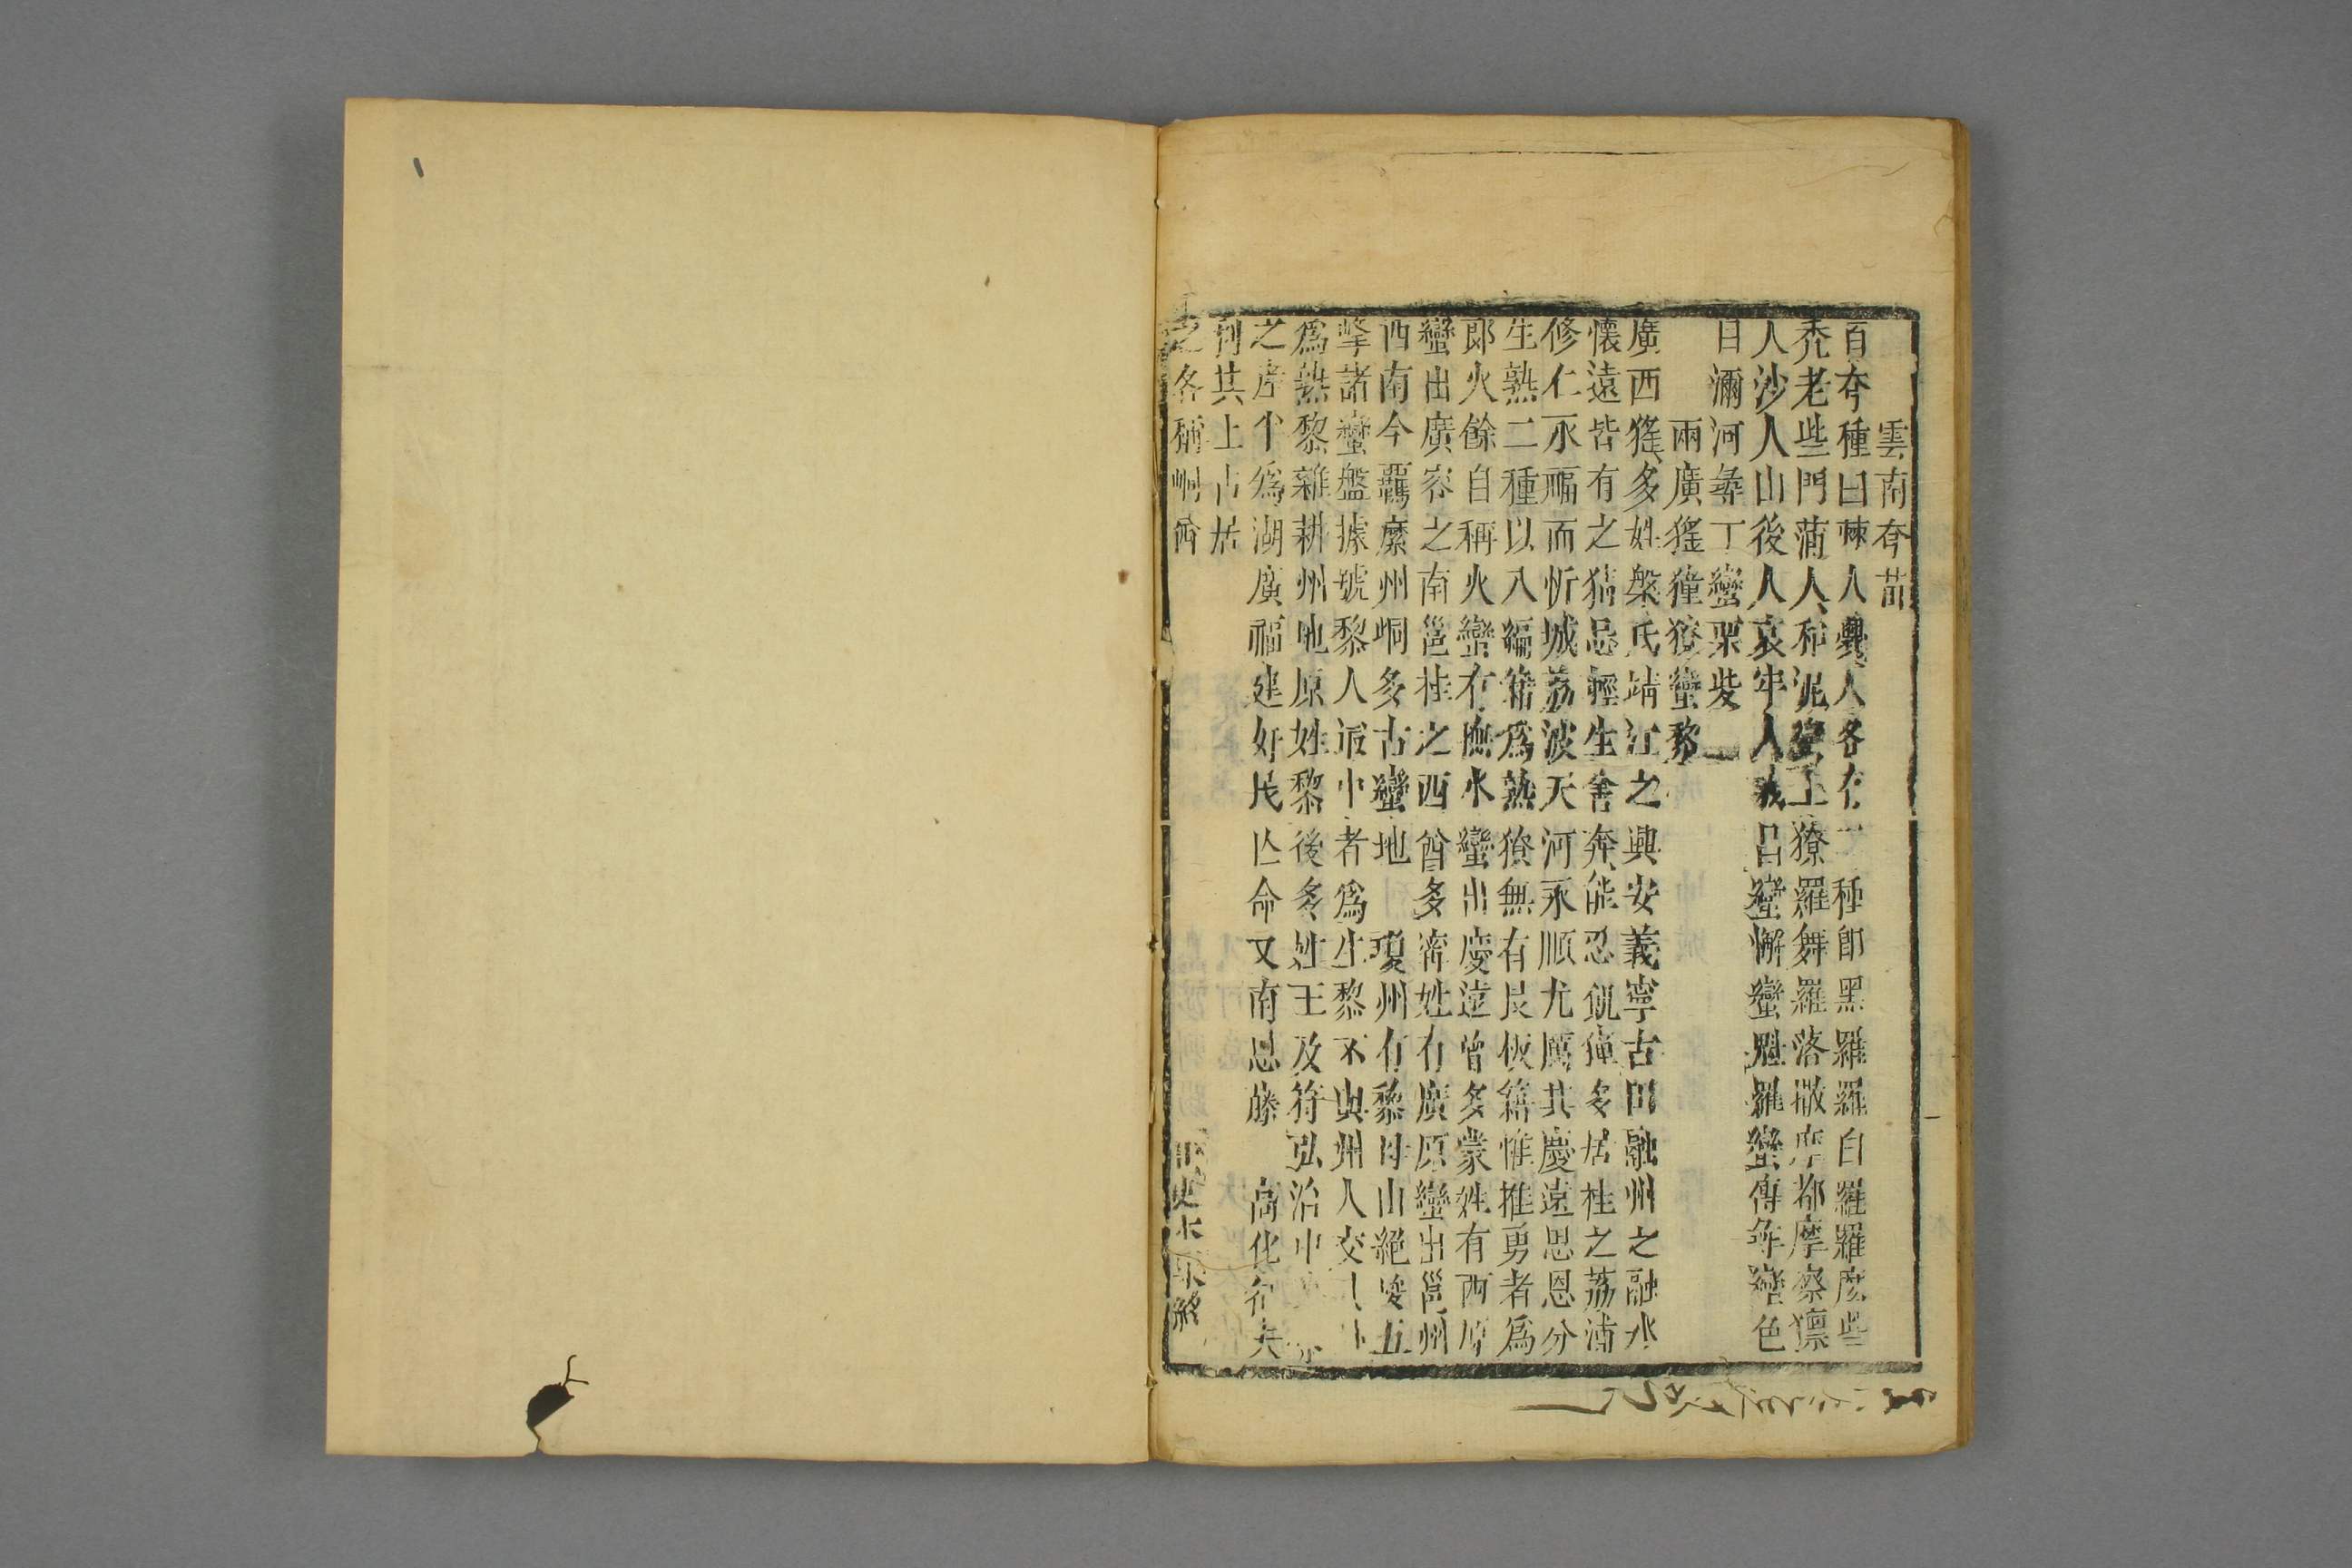 雲南夸苗
百夸種曰㒍人爨人各有二種卽黑羅羅白羅羅麽些
禿老些門蒲人和泥蠻土獠羅舞羅落撒摩都摩察㺕
人沙人山後人哀牢人峩昌蠻懈蠻魁羅蠻傳尋蠻色
目瀰河彝丁蠻栗𱡃
兩廣猺獞獠蠻黎
廣西猺多姓槃氏靖江之興安義寧古田融州之融水
懷遠皆有之猜忌輕生善奔能忍飢獞多居桂之荔浦
修仁永福而忻城荔波天河永順尤厲其慶遠思恩分
生熟二種以入編籍爲熟獠無有長伙籍惟推勇者爲
郎火餘自稱火蠻有撫水蠻出慶遠曾多蒙姓有西原
蠻出廣容之南邕桂之西酋多甯姓有廣原蠻出邕州
西南今羈縻州峒多古蠻地 瓊州有黎母山絕峻五
峯諸蠻盤據號黎人最中者爲生黎不與州人交
爲熟黎雜耕州地原姓黎後多姓王及符弘治中
之産半爲湖廣福建奸民亾命又南恩藤 高化
利其土占居
之各稱峒酋
罪惟錄